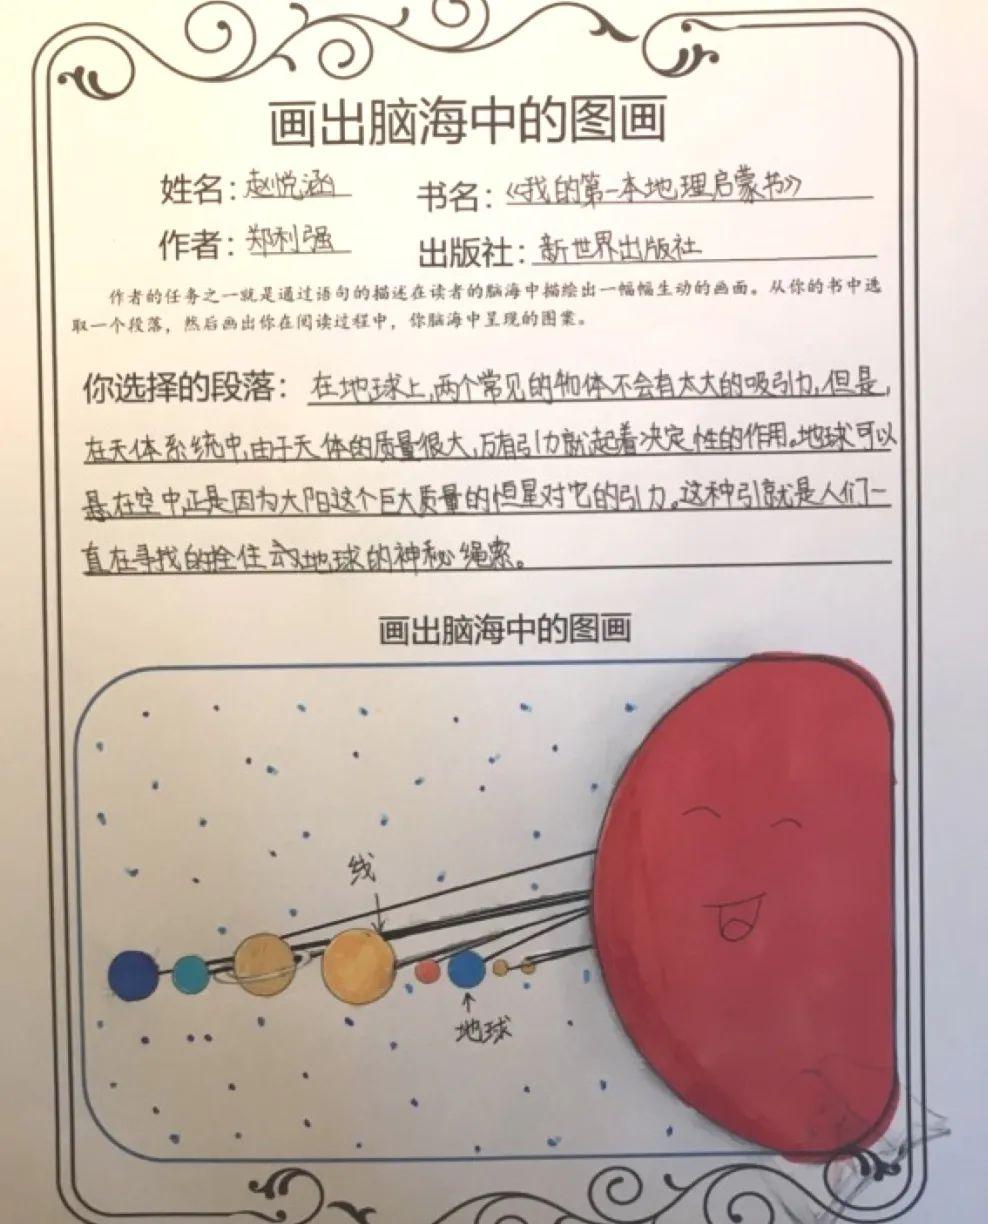 画出脑海中的图画
姓名：赵悦涵 书名：《我的第一本地理启蒙书》
作者：郑利强 出版社：新世界出版社
作者的任务之一就是通过语句的描述在读者的脑海中描绘出一幅幅生动的画面。从你的书中选
取一个段落，然后画出你在阅读过程中，你脑海中呈现的图案。
你选择的段落：在地球上，两个常见的物体不会有太大的吸引力，但是，
在天体系统中，由于天体的质量很大，万有引力就起着决定性的作用。地球可以
悬在空中，正是因为太阳这个巨大质量的恒星对它的引力。这种引就是人们一
直在寻找的拴住地球的神秘绳索。
画出脑海中的图画
线
地球